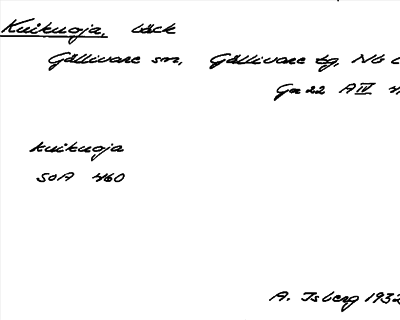 Kuikuoja, bäck
Gällivare sn, Gällivare tg, Nb
Ga 22 A IV
kuikuoja
SOA 460
A. Isberg 1932